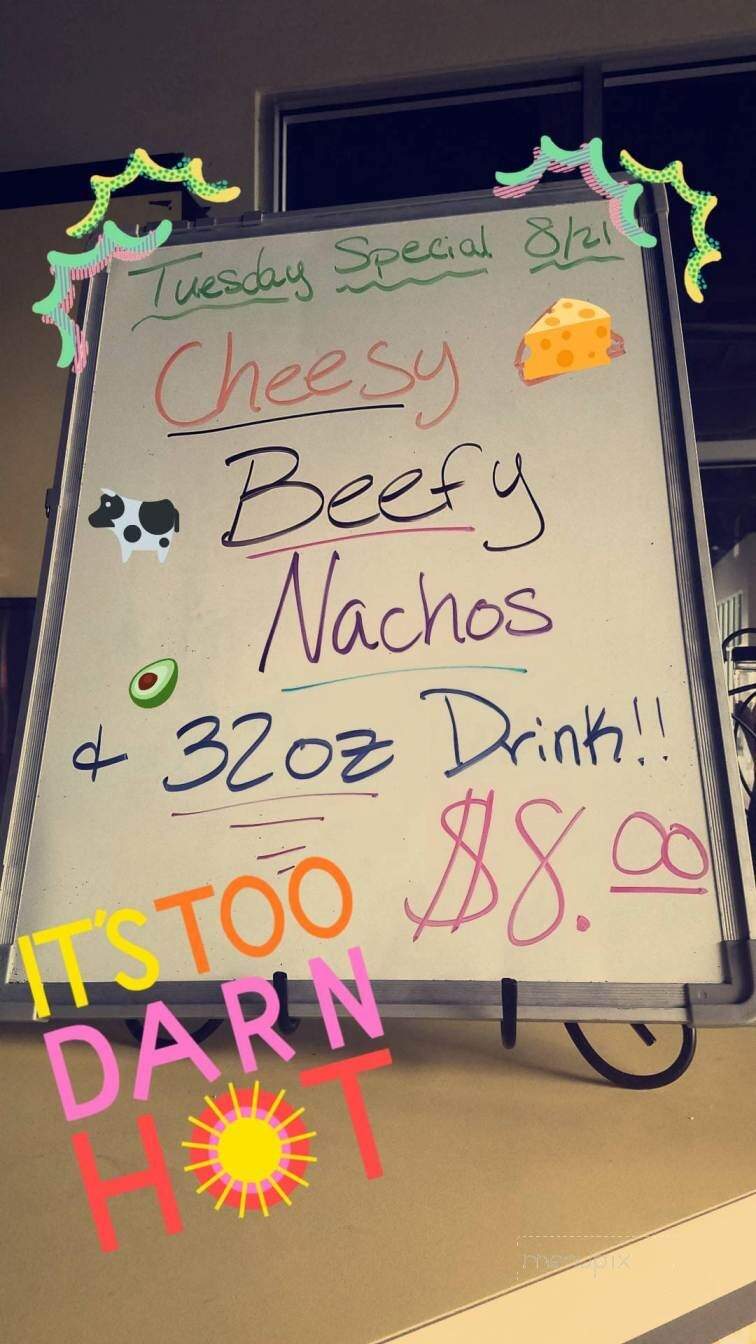 Tuesday Special 8/21
Cheesy
Beefy
Nachos
& 32oz Drink!!
$8.00
IT'S TOO
DARN
HOT
menupix